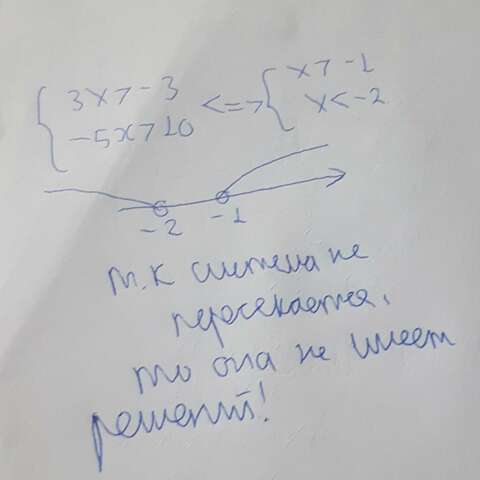 3x > -3 <=> x > -1
-5x > 10 x < -2
-2 -1
т.к система не
пересекается,
то она не имеет
решений!